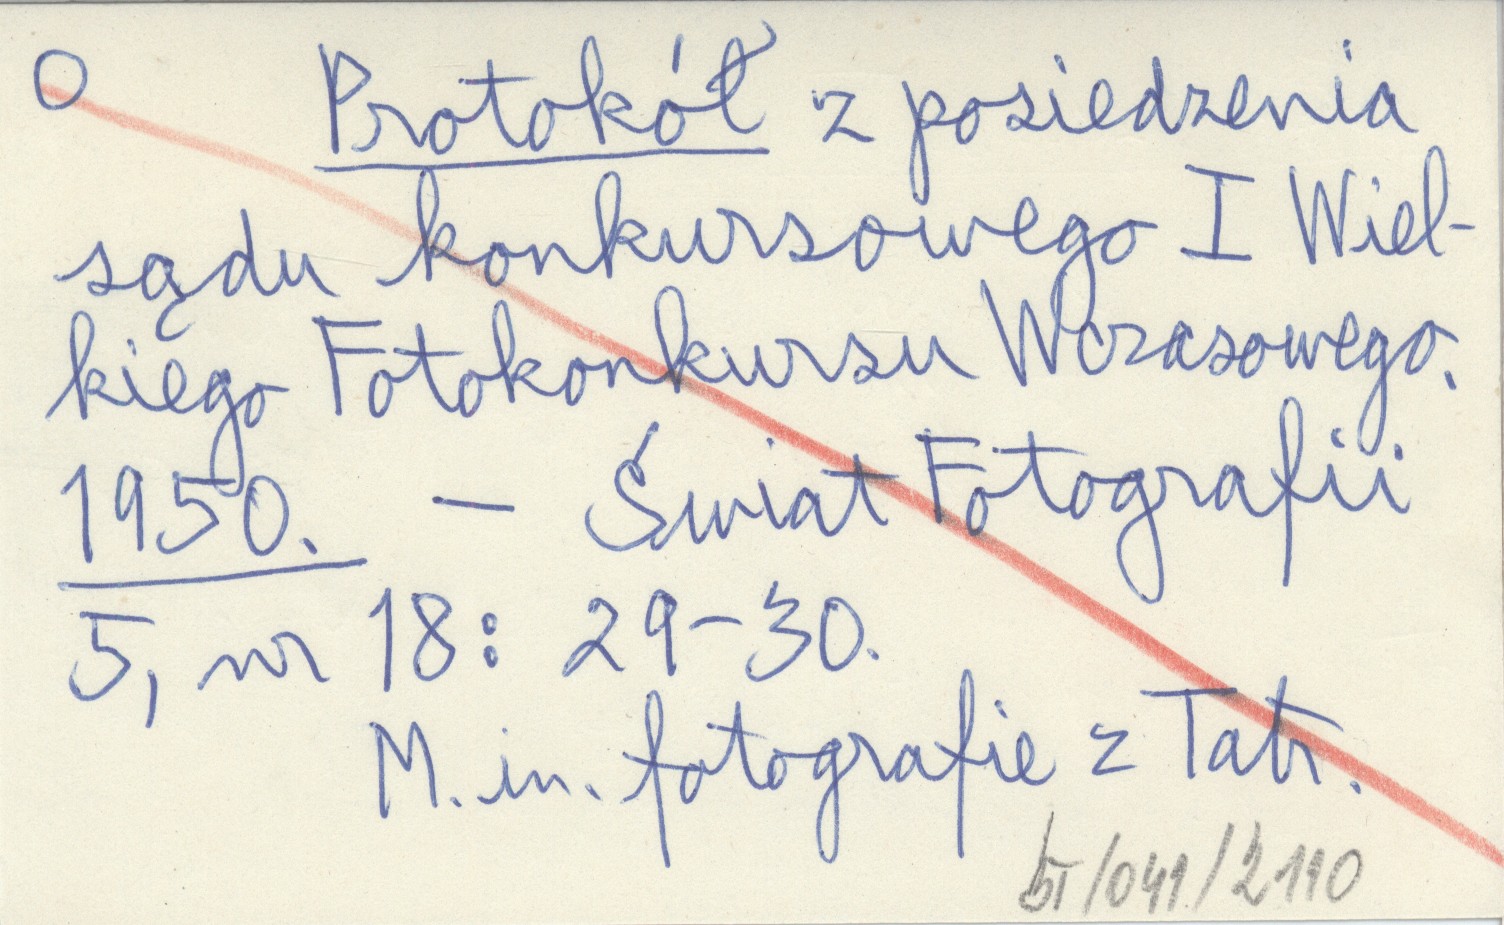 O Protokół z posiedzenia
sądu konkursowego I Wiel-
kiego Fotokonkursu Wczasowego.
1950. — Świat Fotografii
5, nr 18: 29-30.
M.in. fotografie z Tatr.
/041/2110